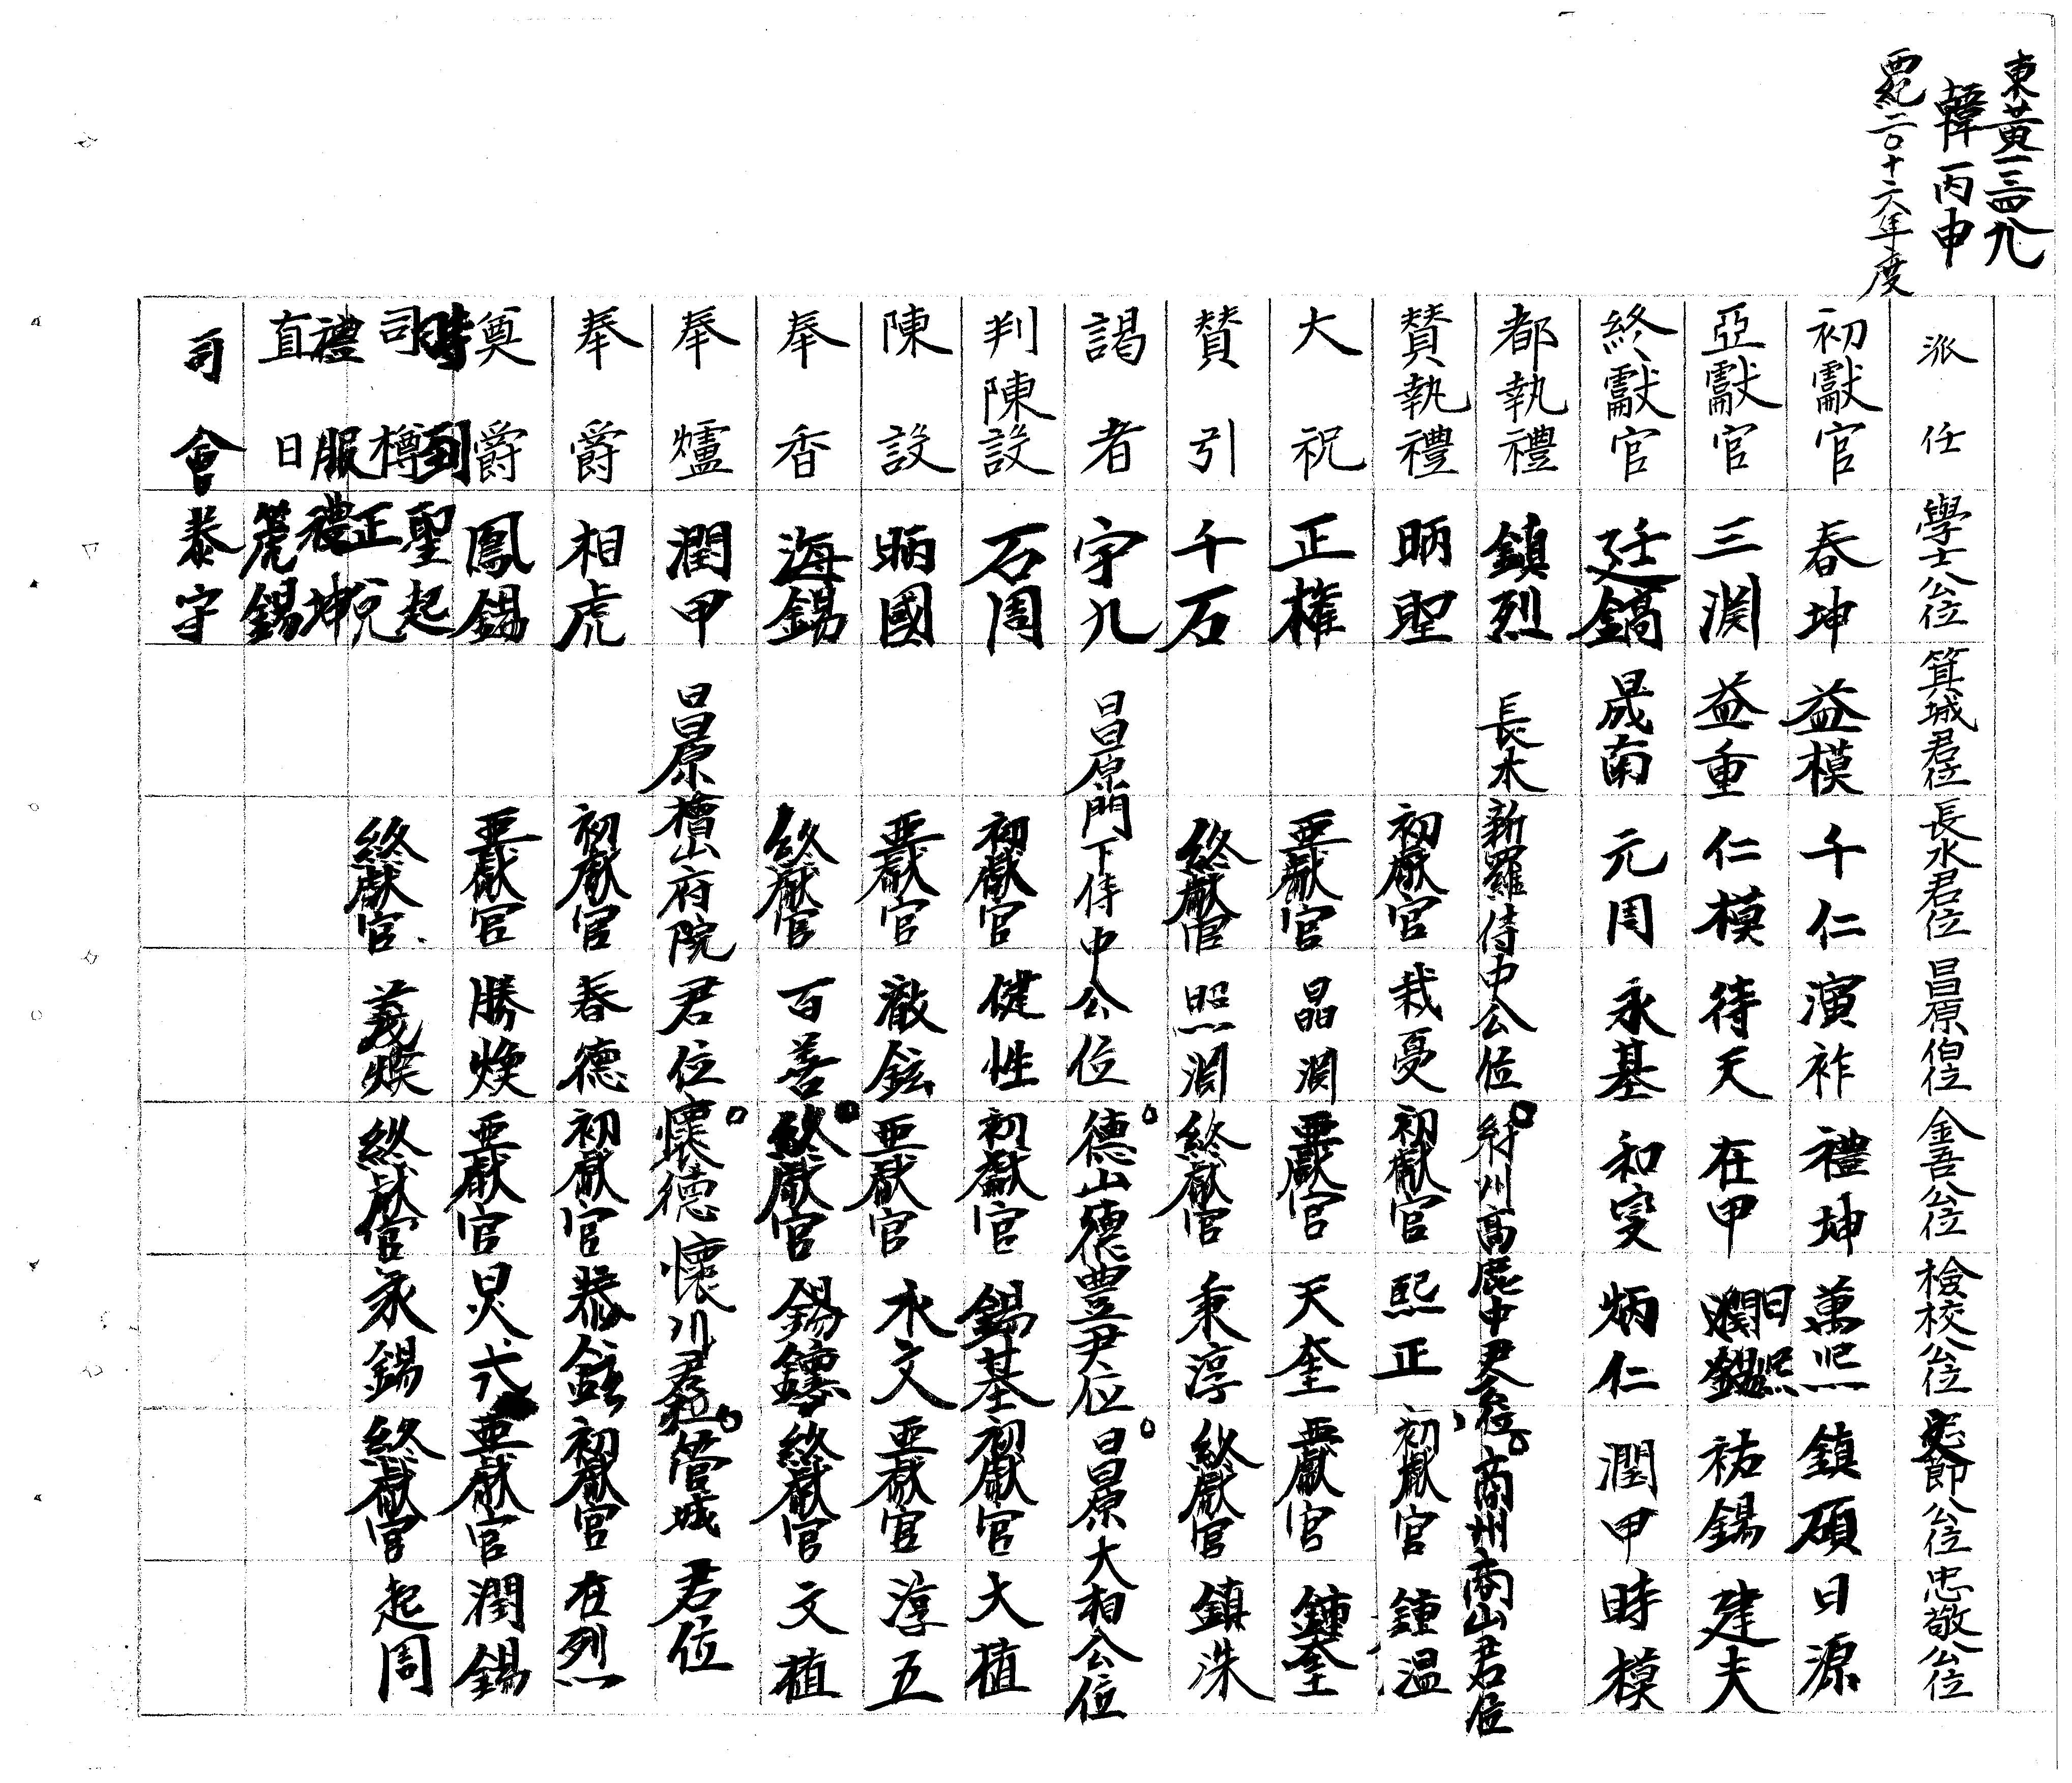 東黃一三四九
韓丙申
西紀二〇十六年度
派任 學士公位 箕城君位 長水君位 昌原伯位 金吾公位 檢校公位 節公位 忠敬公位
初獻官 春坤 益模 千仁 演祚 禮坤 萬熙 鎮碩 日源
亞獻官 三渕 益重 仁模 待天 在甲 潤錫 日熙 祐錫 建夫
終獻官 廷鎬 晟南 元周 永基 和燮 炳仁 潤甲 時模
都執禮 鎮烈 長水 新羅侍中公位 商州商山君位
賛執禮 昞聖 初獻官 栽憂 初獻官 熙正 初獻官 鍾温
大祝 正權 亞獻官 晶渕 亞獻官 天奎 亞獻官 鍾奎
賛引 千石 終獻官 照渕 終獻官 秉淳 終獻官 鎮洙
謁者 宇九 昌原門下侍中公位 德山德豊尹位 昌原大相公位
判陳設 石周 初獻官 健性 初獻官 錫基 初獻官 大植
陳設 昞國 亞獻官 澈鉉 亞獻官 永文 亞獻官 淳五
奉香 海錫 終獻官 百善 終獻官 錫鑄 終獻官 文植
奉爐 潤甲 昌原檜山府院君位 懷德懷川君位 管城君位
奉爵 相虎 初獻官 春德 初獻官 泰鉉 初獻官 在烈
奠爵 鳳錫 亞獻官 勝煥 亞獻官 炅六 亞獻官 潤錫
時到 聖起
司樽 正兌 終獻官 義煥 終獻官 永錫 終獻官 起周
禮服 禮坤
直日 箎錫
司會 泰宇